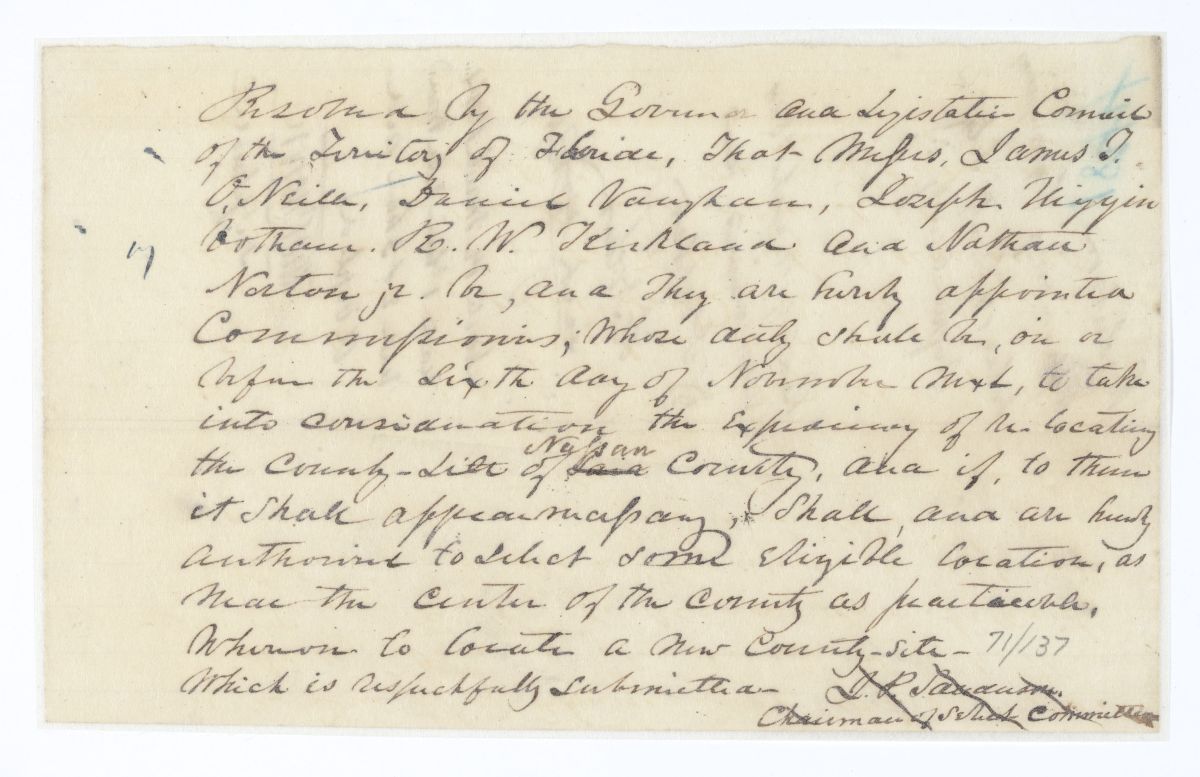 Resolved by the Governor and Legislative Council
of the Territory of Florida, That Messrs. James T.
O,Neill, Daniel Vaughan, Joseph Higgin
botham. R. W. Kirkland and Nathan
Norton jr. be, and They are hereby appointed
Commissioners; Whose duty shall be, on or
before the Sixth day of November next, to take
into consideration the Expediency of re-locating
the County-Site of Nassau said County, and if, to them
it Shall appear necessary, Shall, and are hereby
authorised to select some eligible location, as
near the center of the county as practicable,
Whereon to locate a new County-site- 71/137
Which is respectfully submitted- J. P. Sanderson.
Chairman of Select Committee
17